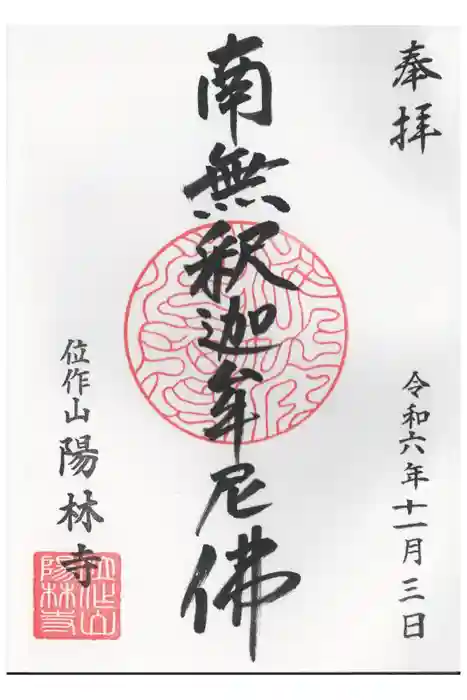 奉拝
令和六年十一月三日
南無釈迦牟尼佛
位作山 陽林寺
位作山
陽林寺